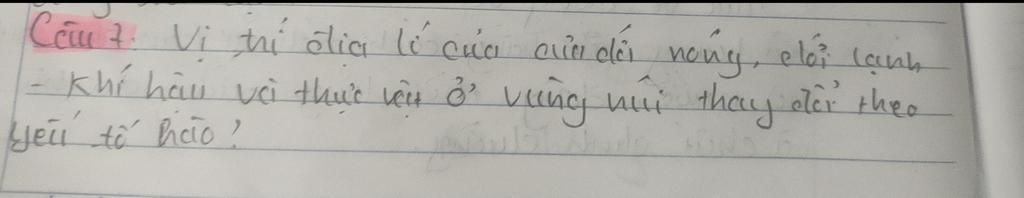 Câu 7. Vị trí địa lí của của đới nóng, đới lạnh
- Khí hậu và thực vật ở vùng núi thay đổi theo
yếu tố nào?